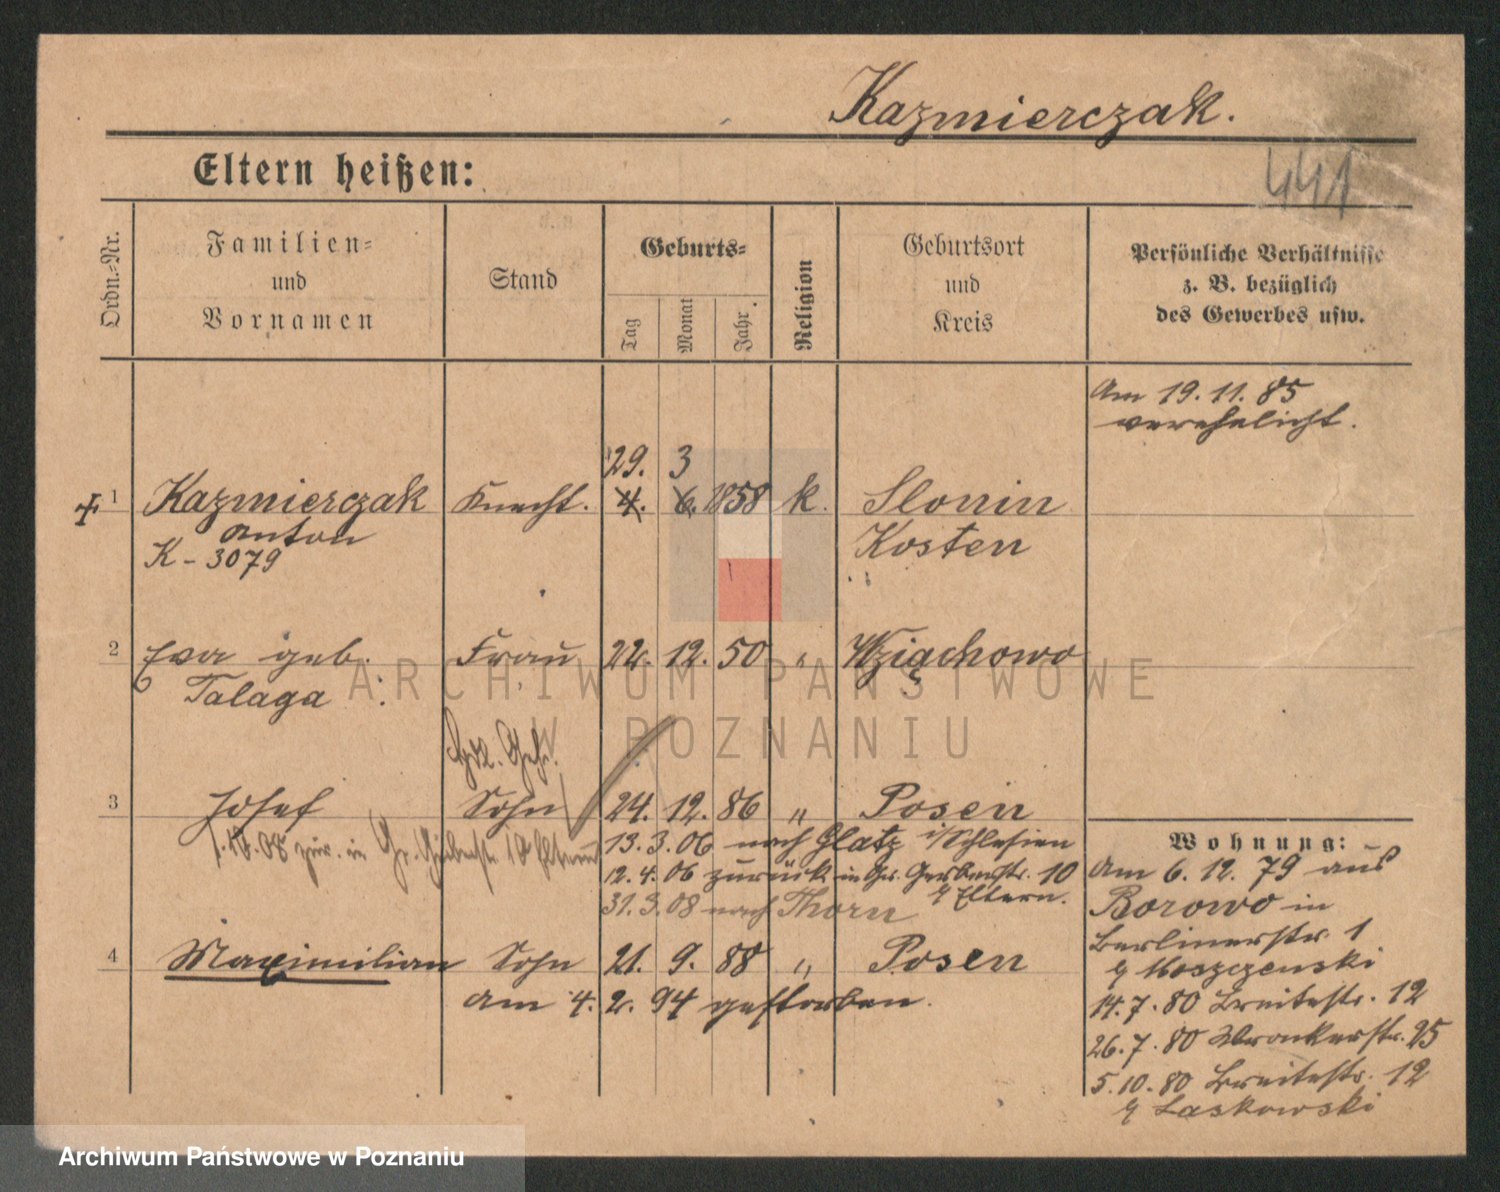 Kazmierczak.
441
Eltern heißen:
Ordn.-Nr.
Familien-
und
Vornamen
Stand
Geburts-
Tag
Monat
Jahr.
Religion
Geburtsort
und
Kreis
Persönliche Verhältnisse
z. B. bezüglich
des Gewerbes usw.
Am 19.11.85
verehelicht.
29. 3
1 Kazmierczak Knecht. 4. 6. 1858 k. Slonin
Anton Kosten
K - 3079
2 Eva geb. Frau 22. 12. 50 " Wziąchowo
Talaga
3 Josef Sohn 24. 12. 86 " Posen
13.3.06 nach Glatz i/Schlesien
12.4.06 zurück in Gr. Gerberstr. 10
b/ Eltern.
1.10.08 zur. in Gr. Gerberstr. 10 Eltern
31.3.08 nach Thorn
4 Maximilian Sohn 21. 9. 88 " Posen
am 4. 2. 94 gestorben.
Wohnung:
Am 6.12.79 aus
Borowo in
Berlinerstr. 1
b/ Moszczenski
14.7.80 Breitestr. 12
26.7.80 Wronkerstr. 25
5.10.80 Breitestr. 12
b/ Laskowski
ARCHIWUM PAŃSTWOWE
W POZNANIU
Archiwum Państwowe w Poznaniu